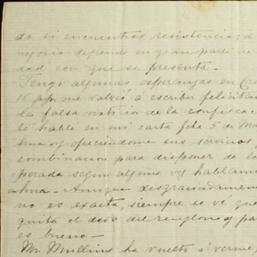 de si encuentras resistencia; el
negocio depende en gran parte de
dad con que se presente.-
Tengo algunas esperanzas en
15 ppo. me volvió a escribir felicitan
la falsa noticia de la confiscac
le hablé en mi carta fcha 5 de
ofreciendome sus servicios
combinacion para disponer de la
segun algunos hablame
Aunque desgraciadamen
no es exacta, siempre se vé que
quita el del renglon, y pa
es bueno.-
Mr. Mullins ha vuelto á verme,